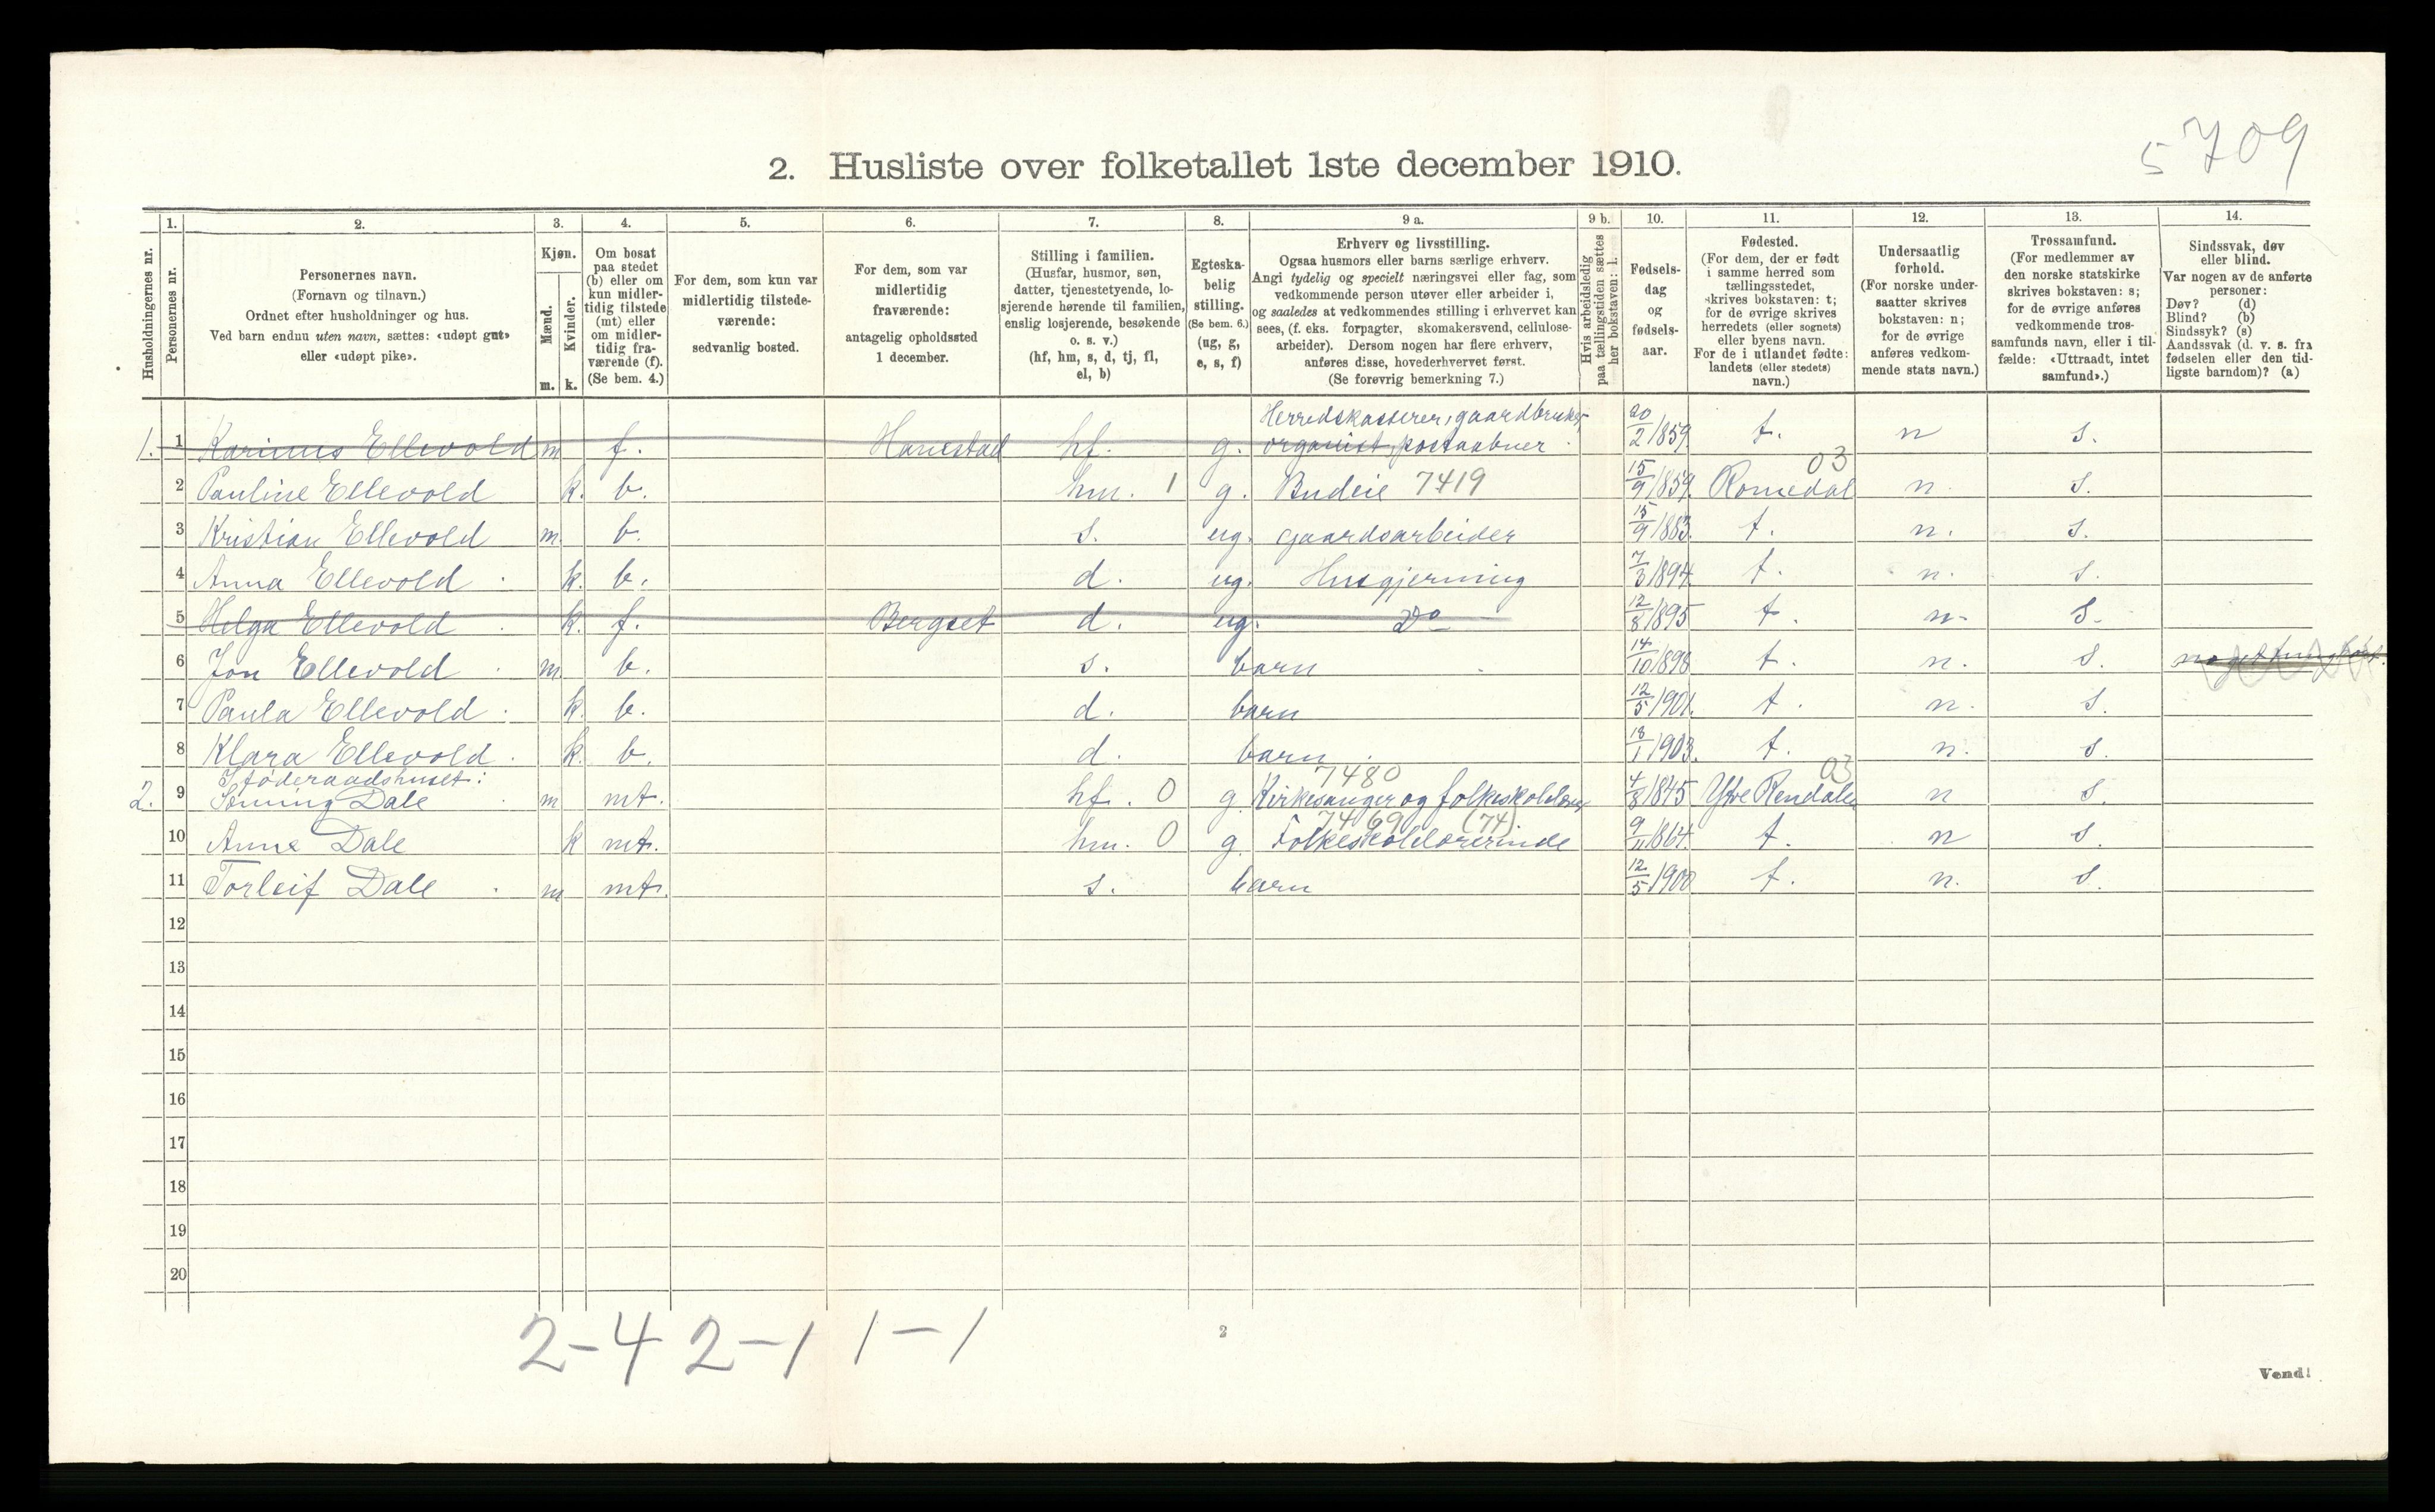 5709
2. Husliste over folketallet 1ste december 1910.
1. 2. 3. 4. 5. 6. 7. 8. 9 a. 9 b. 10. 11. 12. 13. 14.
Husholdningernes nr.
Personernes nr.
Personernes navn.
(Fornavn og tilnavn.)
Ordnet efter husholdninger og hus.
Ved barn endnu uten navn, sættes: «udøpt gut»
eller «udøpt pike».
Kjøn.
Mænd.
Kvinder.
m. k.
Om bosat
paa stedet
(b) eller om
kun midler-
tidig tilstede
(mt) eller
om midler-
tidig fra-
værende (f).
(Se bem. 4.)
For dem, som kun var
midlertidig tilstede-
værende:
sedvanlig bosted.
For dem, som var
midlertidig
fraværende:
antagelig opholdssted
1 december.
Stilling i familien.
(Husfar, husmor, søn,
datter, tjenestetyende, lo-
sjerende hørende til familien,
enslig losjerende, besøkende
o. s. v.)
(hf, hm, s, d, tj, fl,
el, b)
Egteska-
belig
stilling.
(Se bem. 6.)
(ug, g,
e, s, f)
Erhverv og livsstilling.
Ogsaa husmors eller barns særlige erhverv.
Angi tydelig og specielt næringsvei eller fag, som
vedkommende person utøver eller arbeider i,
og saaledes at vedkommendes stilling i erhvervet kan
sees, (f. eks. forpagter, skomakersvend, cellulose-
arbeider). Dersom nogen har flere erhverv,
anføres disse, hovederhvervet først.
(Se forøvrig bemerkning 7.)
Hvis arbeidsledig
paa tællingstiden sættes
her bokstaven: l.
Fødsels-
dag
og
fødsels-
aar.
Fødested.
(For dem, der er født
i samme herred som
tællingsstedet,
skrives bokstaven: t;
for de øvrige skrives
herredets (eller sognets)
eller byens navn.
For de i utlandet fødte:
landets (eller stedets)
navn.)
Undersaatlig
forhold.
(For norske under-
saatter skrives
bokstaven: n;
for de øvrige
anføres vedkom-
mende stats navn.)
Trossamfund.
(For medlemmer av
den norske statskirke
skrives bokstaven: s;
for de øvrige anføres
vedkommende tros-
samfunds navn, eller i til-
fælde: «Uttraadt, intet
samfund».)
Sindssvak, døv
eller blind.
Var nogen av de anførte
personer:
Døv? (d)
Blind? (b)
Sindssyk? (s)
Aandssvak (d. v. s. fra
fødselen eller den tid-
ligste barndom)? (a)
Herredskasserer, gaardbruker,
1. 1 Karinus Ellevold m f. Hanestad hf. g. organist, postaabner. 20/2 1859 t. n s.
2 Pauline Ellevold k. b. hm. 1 g. Budeie 7419 15/9 1859. Romedal 03 n. s.
3 Kristian Ellevold m. b. s. ug. gaardsarbeider 15/9 1883. t. n. s.
4 Anna Ellevold k. b. d. ug. Husgjerning 7/3 1894. t. n. s.
5 Helga Ellevold k. f. Bergset d. ug. Do 12/8 1895 t. n. s.
6 Jon Ellevold m b. s. barn 14/10 1898 t. n. s. noget
7 Paula Ellevold k. b. d. barn 12/5 1901. t. n. s.
8 Klara Ellevold k. b. d. barn 18/1 1903. t. n. s.
I føderaadshuset: 7480 03
2. 9 Dale m mt. hf. 0 g. Kirkesanger og folkeskolelærer 4/8 1845 Ytre Rendalen n s.
7469 (74)
10 Anne Dale k mt. hm. 0 g. Folkeskolelærerinde 9/11 1864. t. n s.
11 Torleif Dale m mt. s. barn 12/5 1900 t. n. s.
12
13
14
15
16
17
18
19
20
2-4 2-1 1-1
2
Vend!